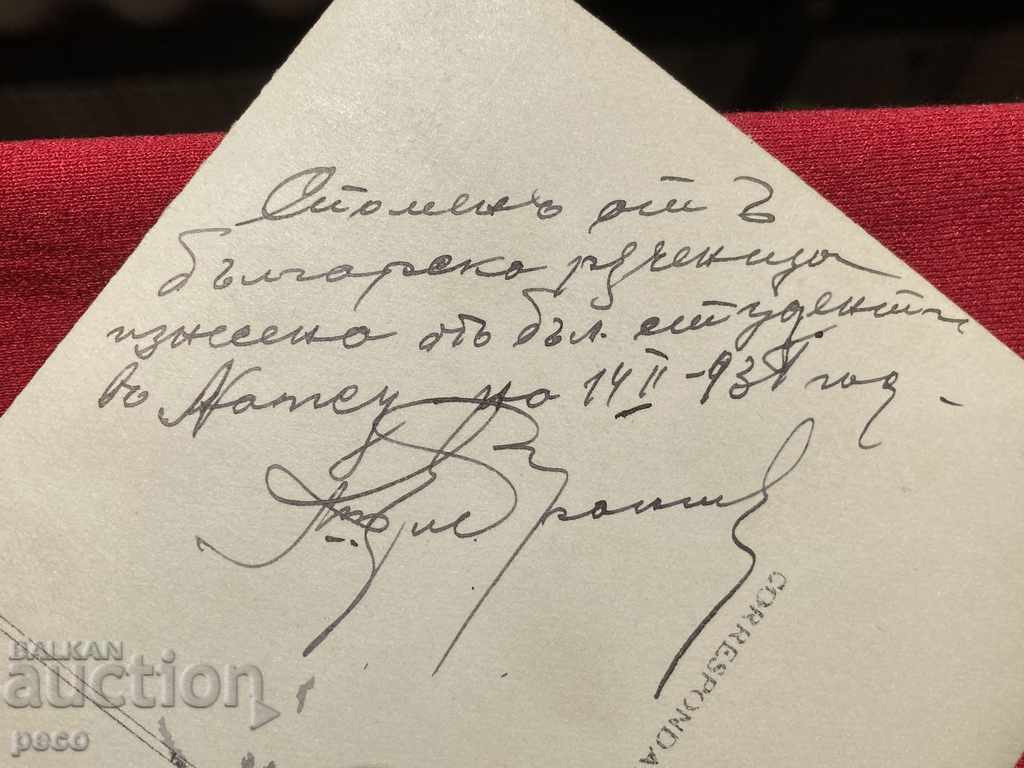 Споменъ отъ
българска рѫченица
изнесена отъ бъл. студенти
въ Нансу на 14 II - 931 год.
CORRESPONDA
BALKAN
auction
peco